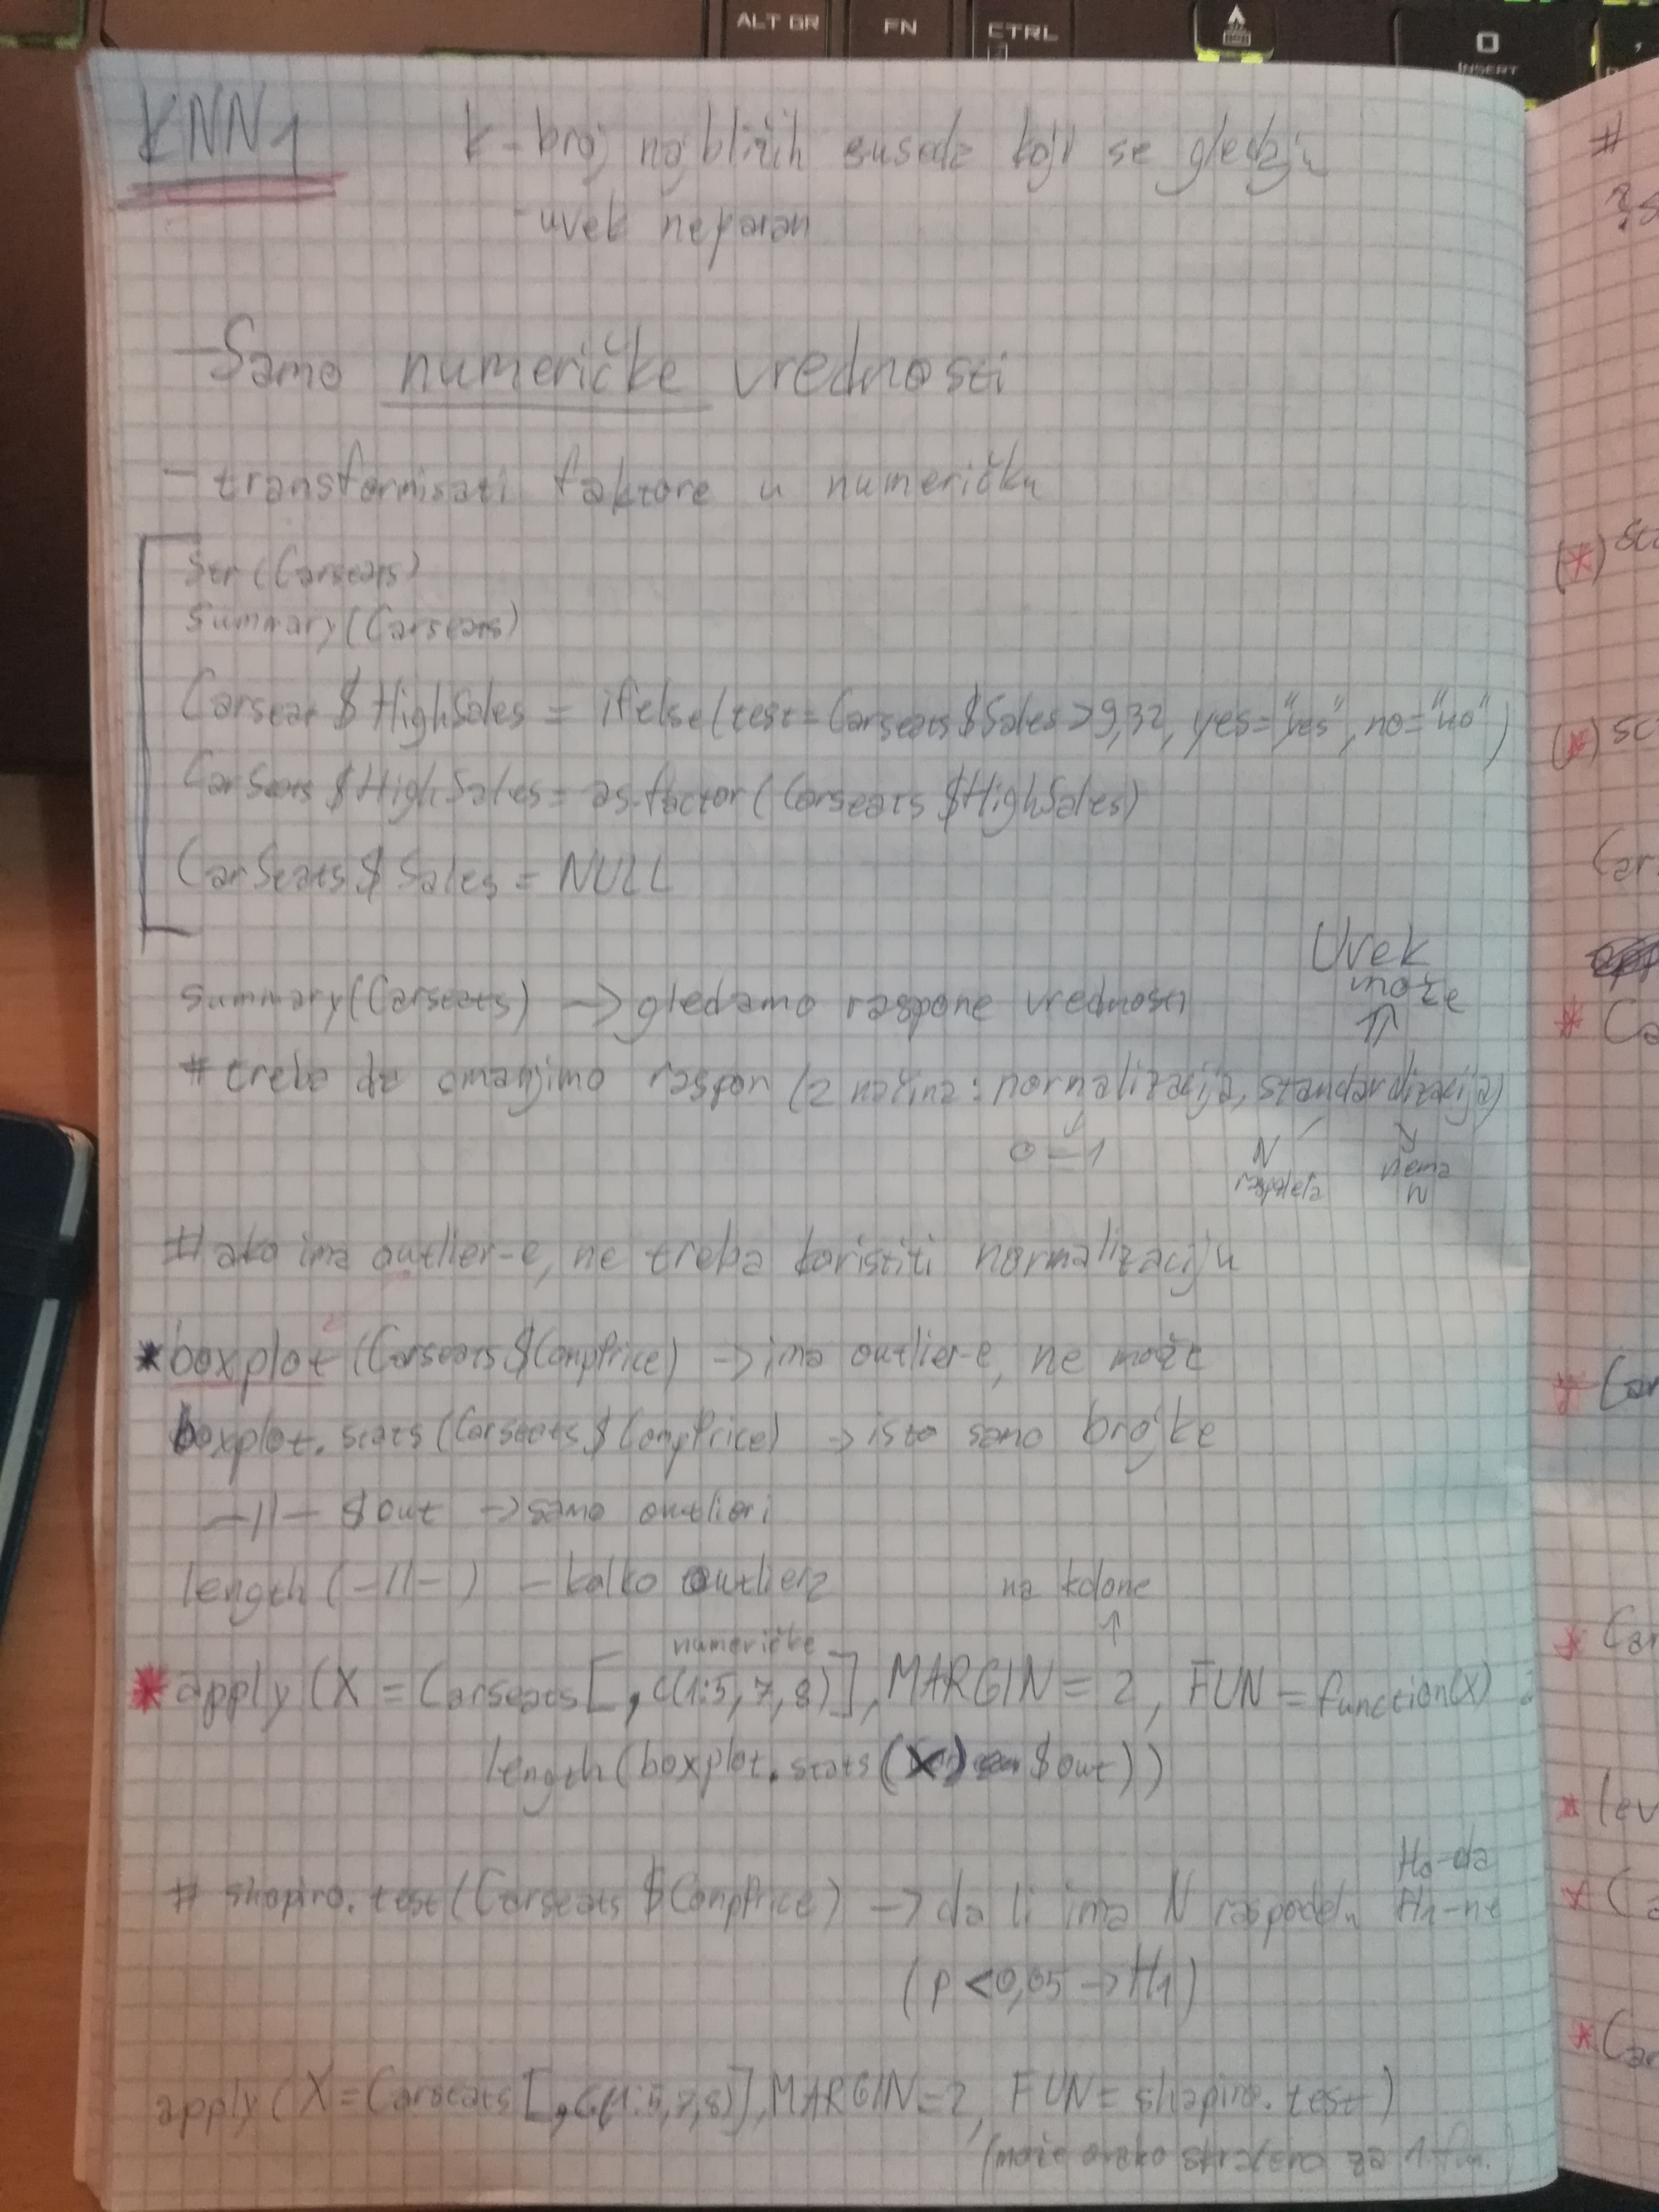 ALT GR FN CTRL 0 INSERT
KNN1 k-broj najbližih suseda koji se gledaju
-uvek neparan
-Samo numeričke vrednosti
- transformisati faktore u numeričku
str(Carseats)
summary(Carseats)
Carseat$HighSales = ifelse(test=Carseats$Sales>9,32, yes="yes", no="no")
CarSeats$HighSales = as.factor(Carseats$HighSales)
CarSeats$Sales = NULL
Uvek
može
summary(Carseats) -> gledamo raspone vrednosti
# treba da smanjimo raspon (2 načina: normalizacija, standardizacija)
0-1 N raspodela nema N
# ako ima outlier-e, ne treba koristiti normalizaciju
* boxplot(Carseats$CompPrice) -> ima outlier-e, ne može
boxplot.stats(Carseats$CompPrice) -> isto samo brojke
-||- $out -> samo outlieri
length(-||-) - kolko outliera
na kolone
numeričke
* apply(X = Carseats[,c(1:5,7,8)], MARGIN = 2, FUN = function(x)
length(boxplot.stats(x)$out))
H0-da
# shapiro.test(Carseats$CompPrice) -> da li ima N raspodelu H1-ne
(p<0,05 -> H1)
apply(X=Carseats[,c(1:5,7,8)], MARGIN=2, FUN=shapiro.test)
(može ovako skraćeno za 1 fju.)
#
(*)
(*) sc
Car
* Ca
* Car
* Car
* lev
* Ca
* Car